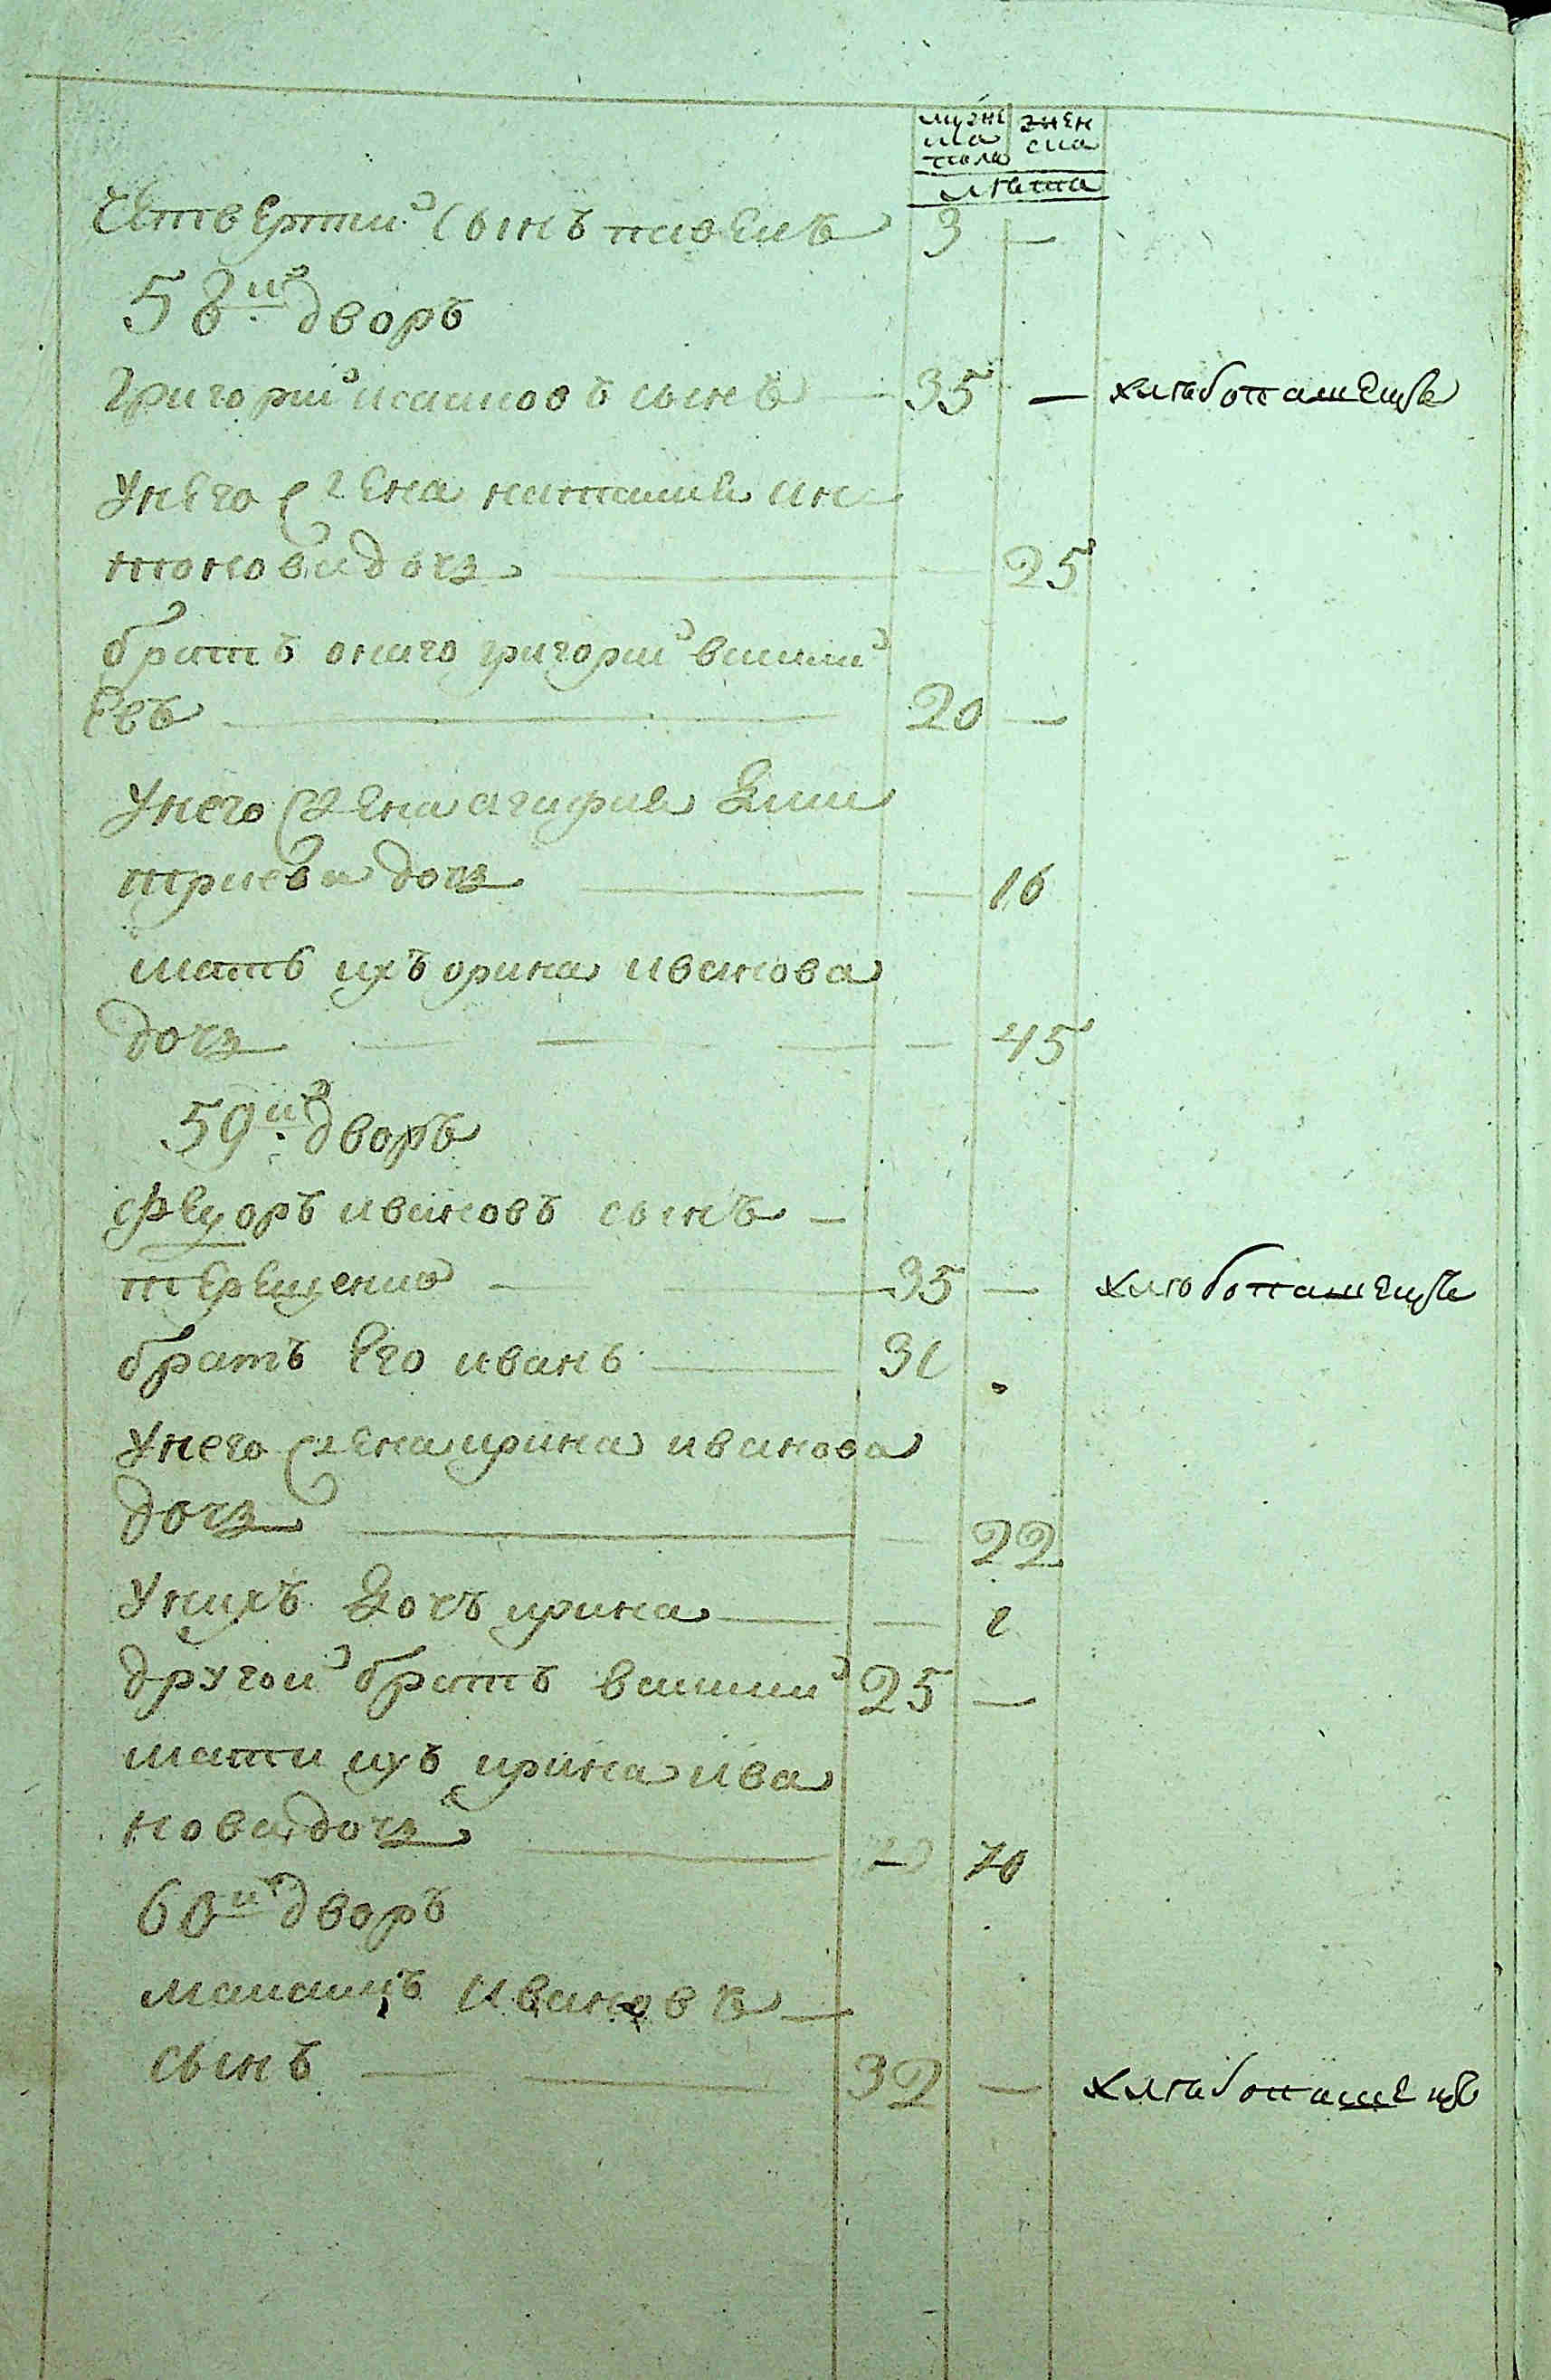 мужес
ка женс
пола ска
лета
Четвертий сынъ павелъ 3 —
58й дворъ
Григорий исаиновъ сынъ — 35 — хлебопашецъ
Унего жена наталия ан
тонова дочь — — 25
братъ онаго григория василий
евъ — 20 —
Унего жена агафия дми
триева дочь — — 16
мать ихъ орина иванова
дочь — — — — 45
59й дворъ
Федоръ ивановъ сынъ —
терещенко — 35 — хлебопашецъ
братъ его иванъ — 31
Унего жена ирина иванова
дочь — — 22
Унихъ дочъ ирина — — 1
другой братъ василий 25 —
мати ихъ ирина ива
нова дочь — 70
60й дворъ
Ивановъ —
сынъ — — 32 — хлебопашецъ